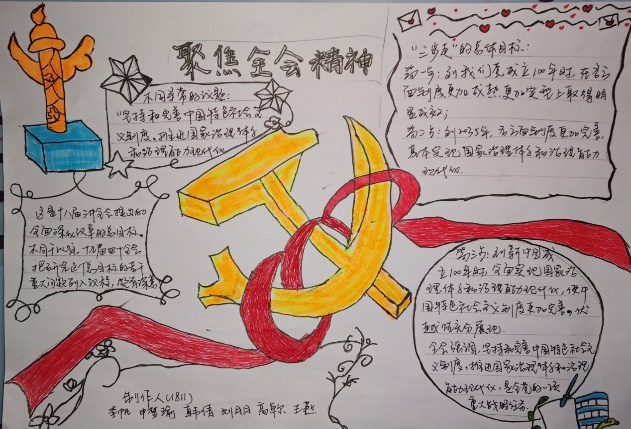 聚焦全会精神
不同寻常的议题:
坚持和完善中国特色社会主
义制度、推进国家治理体系
和治理能力现代化
这是十八届三中全会提出的
全面深化改革的总目标。
不同于以往,十九届四中全会
把研究这个总目标的若干
重大问题列入议程,
"三步走"的总体目标:
第一步:到我们党成立100年时,在各方
面制度更加成熟更加定型上取得明
显成效;
第二步:到2035年,各方面制度更加完善,
基本实现国家治理体系和治理能力
现代化。
第三步:到新中国成
立100年时,全面实现国家治
理体系和治理能力现代化,使中
国特色社会主义制度更加完善、优
越性充分展现。
全会强调,坚持和完善中国特色社会主
义制度、推进国家治理体系和治理
能力现代化,是全党的一项
重大战略任务
制作人(1811)
李帆 申梦瑜 韩倩